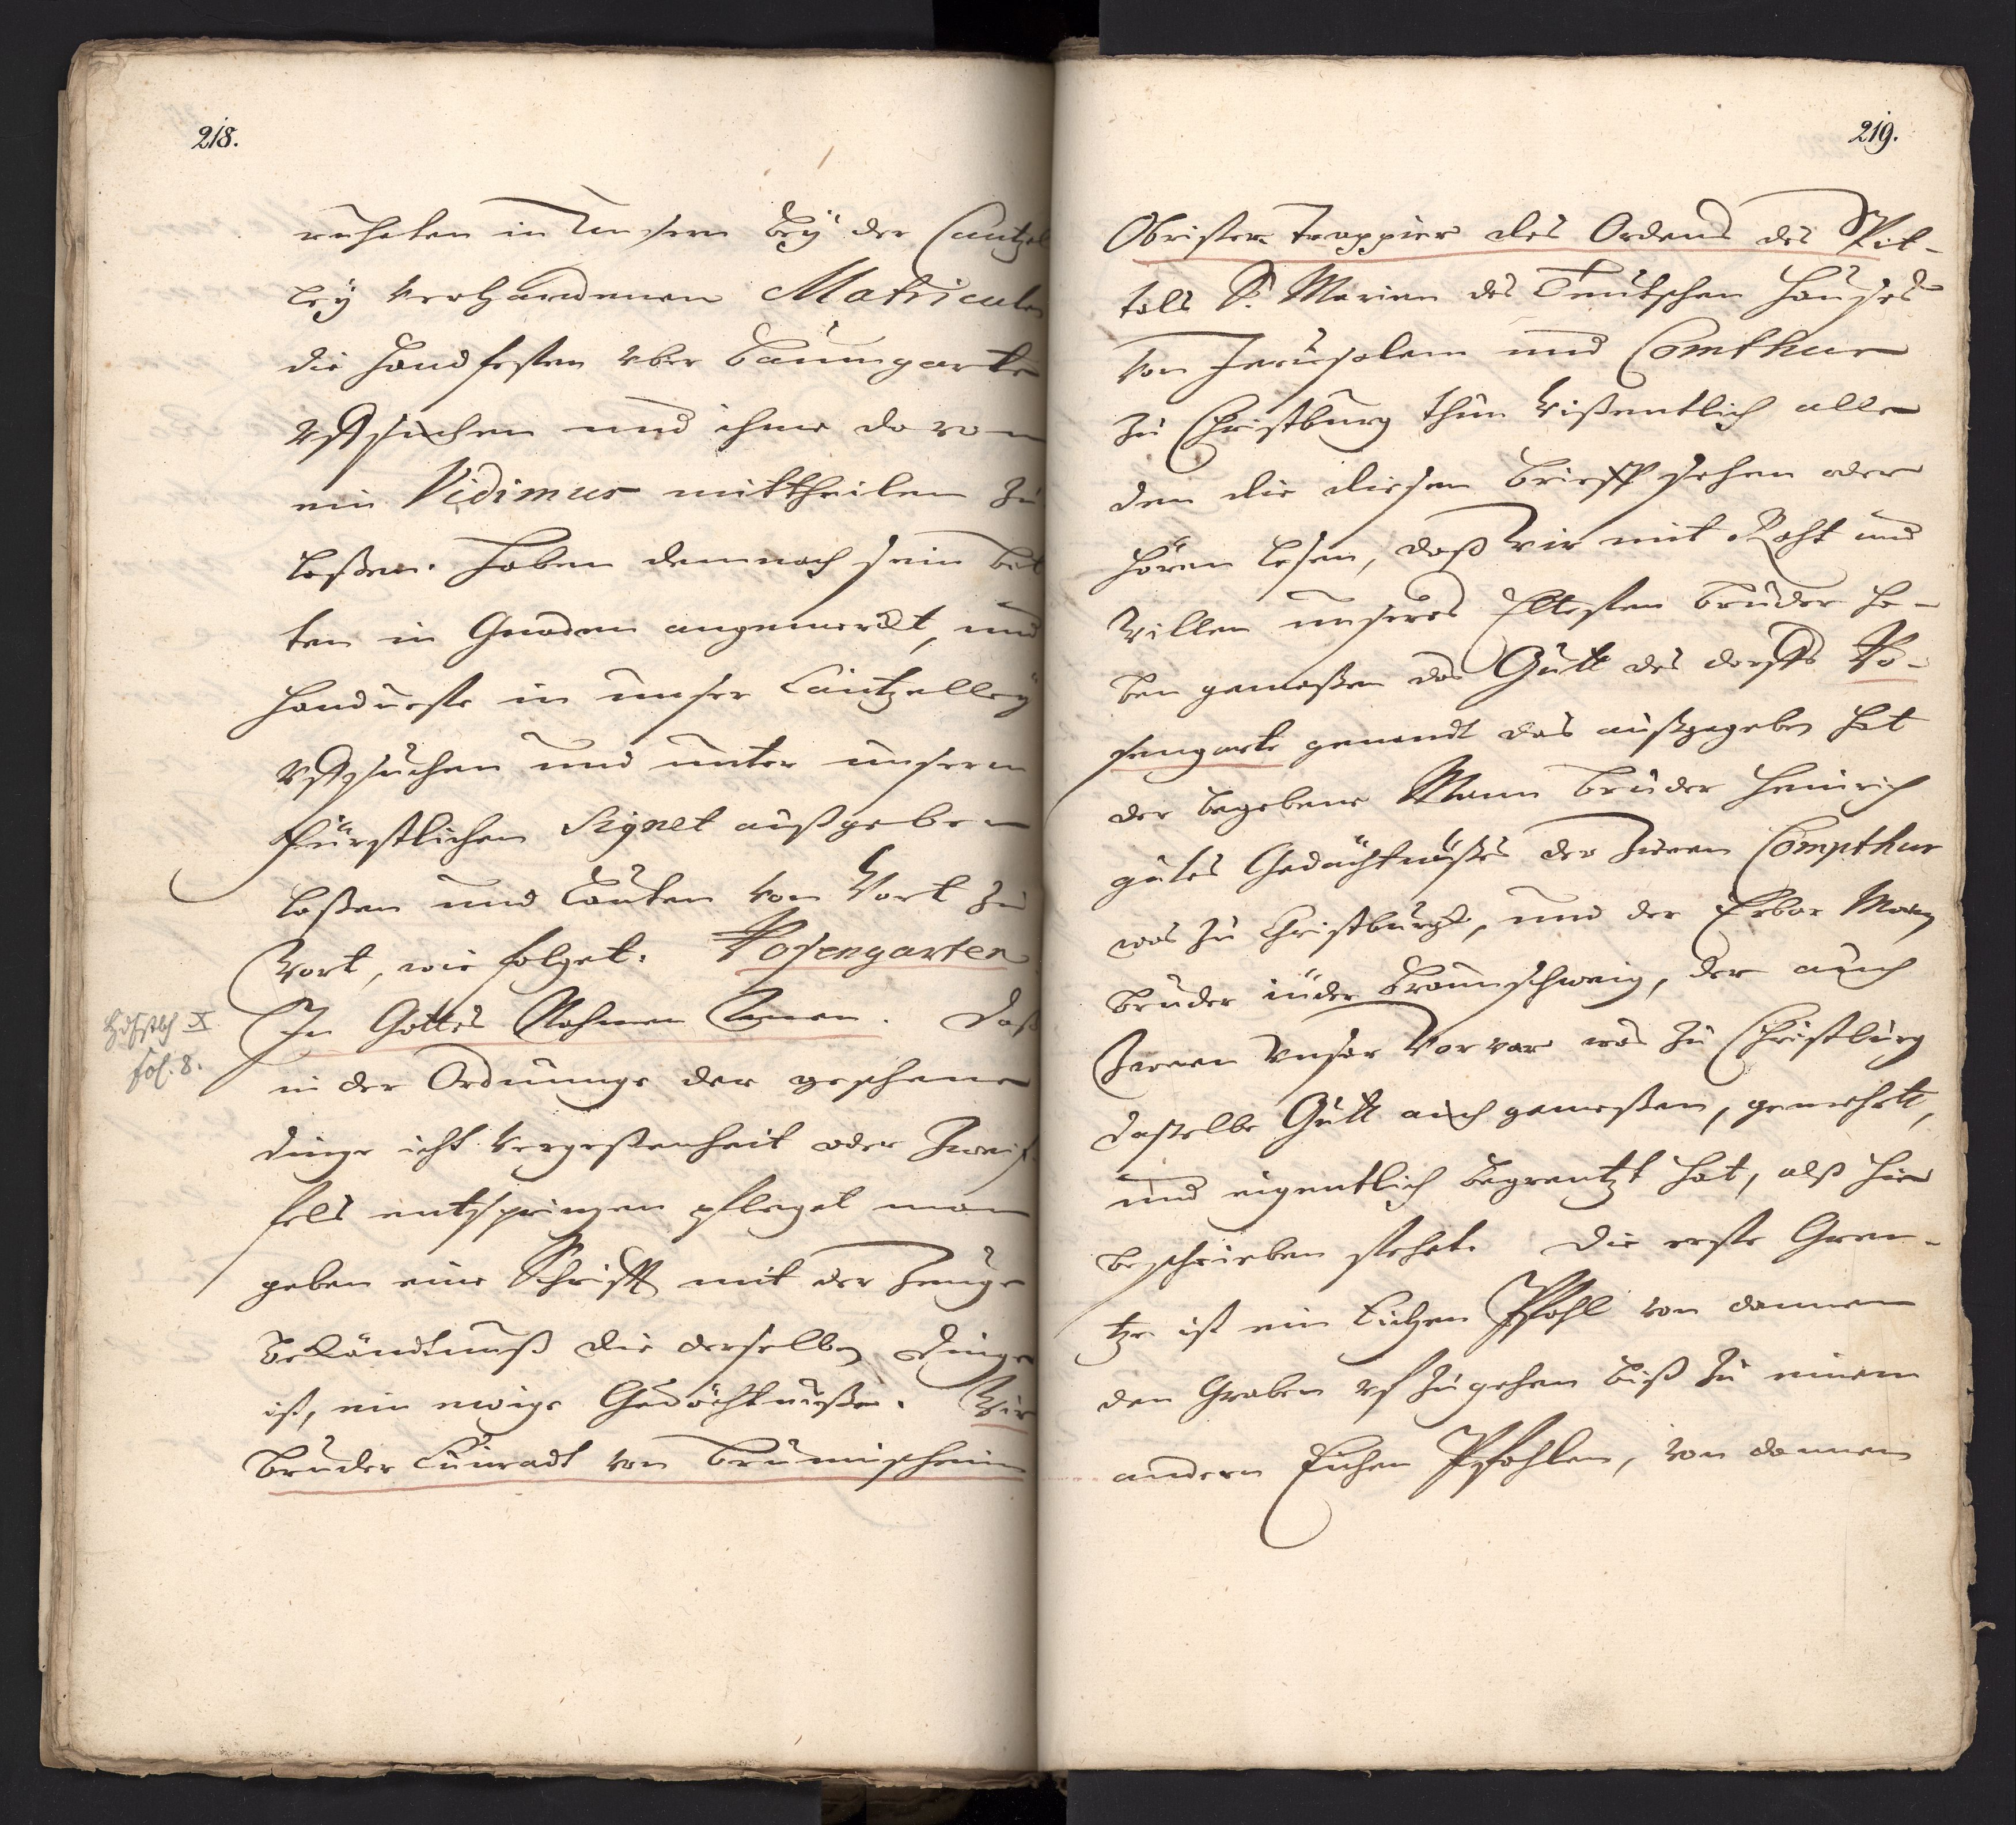 218.
ruheten in Unsern bey der Cantzel
ley verhandenen Matriculn
die Handfesten vber Baumgarte
vffsuchen und ihme davon
ein Vidimus mittheilen zu
laßen. Haben demnach sein bit
ten in Gnaden angemerckt, und
Handueste in unser Cantzelley
vffsuchen und unter unserm
Fürstlichen Signet außgeben
laßen und lauten von Wort zu
Wort, wie folget. Rosengarten
In Gottes Nahmen Amen. Daß
in der Ordnunge der geschenen
dinge icht Vergeßenheit oder Zweif
fels entspringen pfleget man
geben eine Schrifft mit der Zeuge
bekändtnuß die derselben dinge
ist, ein ewige Gedächtnuße. Wir
Bruder Cunradt von Brunnischeim
Hdfstb X
fol. 8.
219.
Obrister Trappier des Ordens des Spit-
tals S. Marien des Teutschen Hauses
Von Jerusalem und Comthur
zu Christburg thun Wißentlich alle
den die diesen Brieff sehen oder
hören lesen, daß Wir mit Raht und
Willen unseres Elltesten Brüder ha-
ben gemeßen das Gutt des dorffs Ro-
sengarte genandt das außgegeben hat
der begebene Mann Bruder Heinrich
gutes Gedächtnüßes der Ziuem Compthur
was zu Christburgk, und der Erbar Mann
Bruder Lüder Braunschweig, der auch
Ziuem Vnser Vorvar was zu Christburg
daßelbe Gutt auch gemeßen, gemehrtt,
und eigentlich begrentzt hat, alß hier
beschrieben stehet. Die erste Gren-
tze ist ein Eichen Pfahl von dannen
den Graben vf zugehen biß zu einem
andern Eichen Pfahlen, von dannen